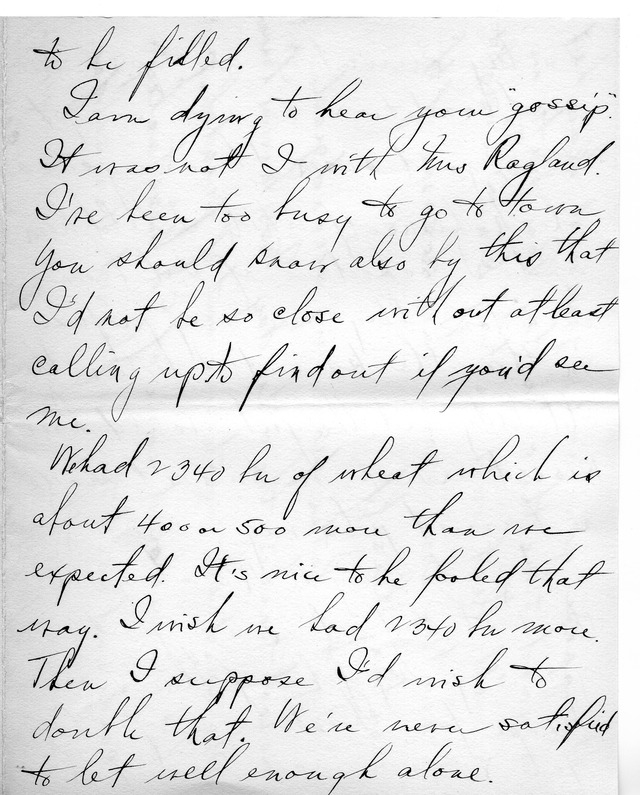 to be filled.
I am dying to hear your "gossip".
It was not I with Mrs Ragland.
I've been too busy to go to town
You should know also by this that
I'd not be so close without at least
calling up to find out if you'd see
me.
We had 2340 bu of wheat which is
about 400 or 500 more than we
expected. It's nice to be fooled that
way. I wish we had 2340 bu more.
Then I suppose I'd wish to
double that. We're never satisfied
to let well enough alone.